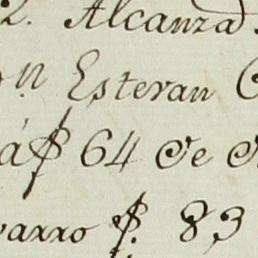 2. Alcanza
n Estevan
á $ 64 de
varro $. 83